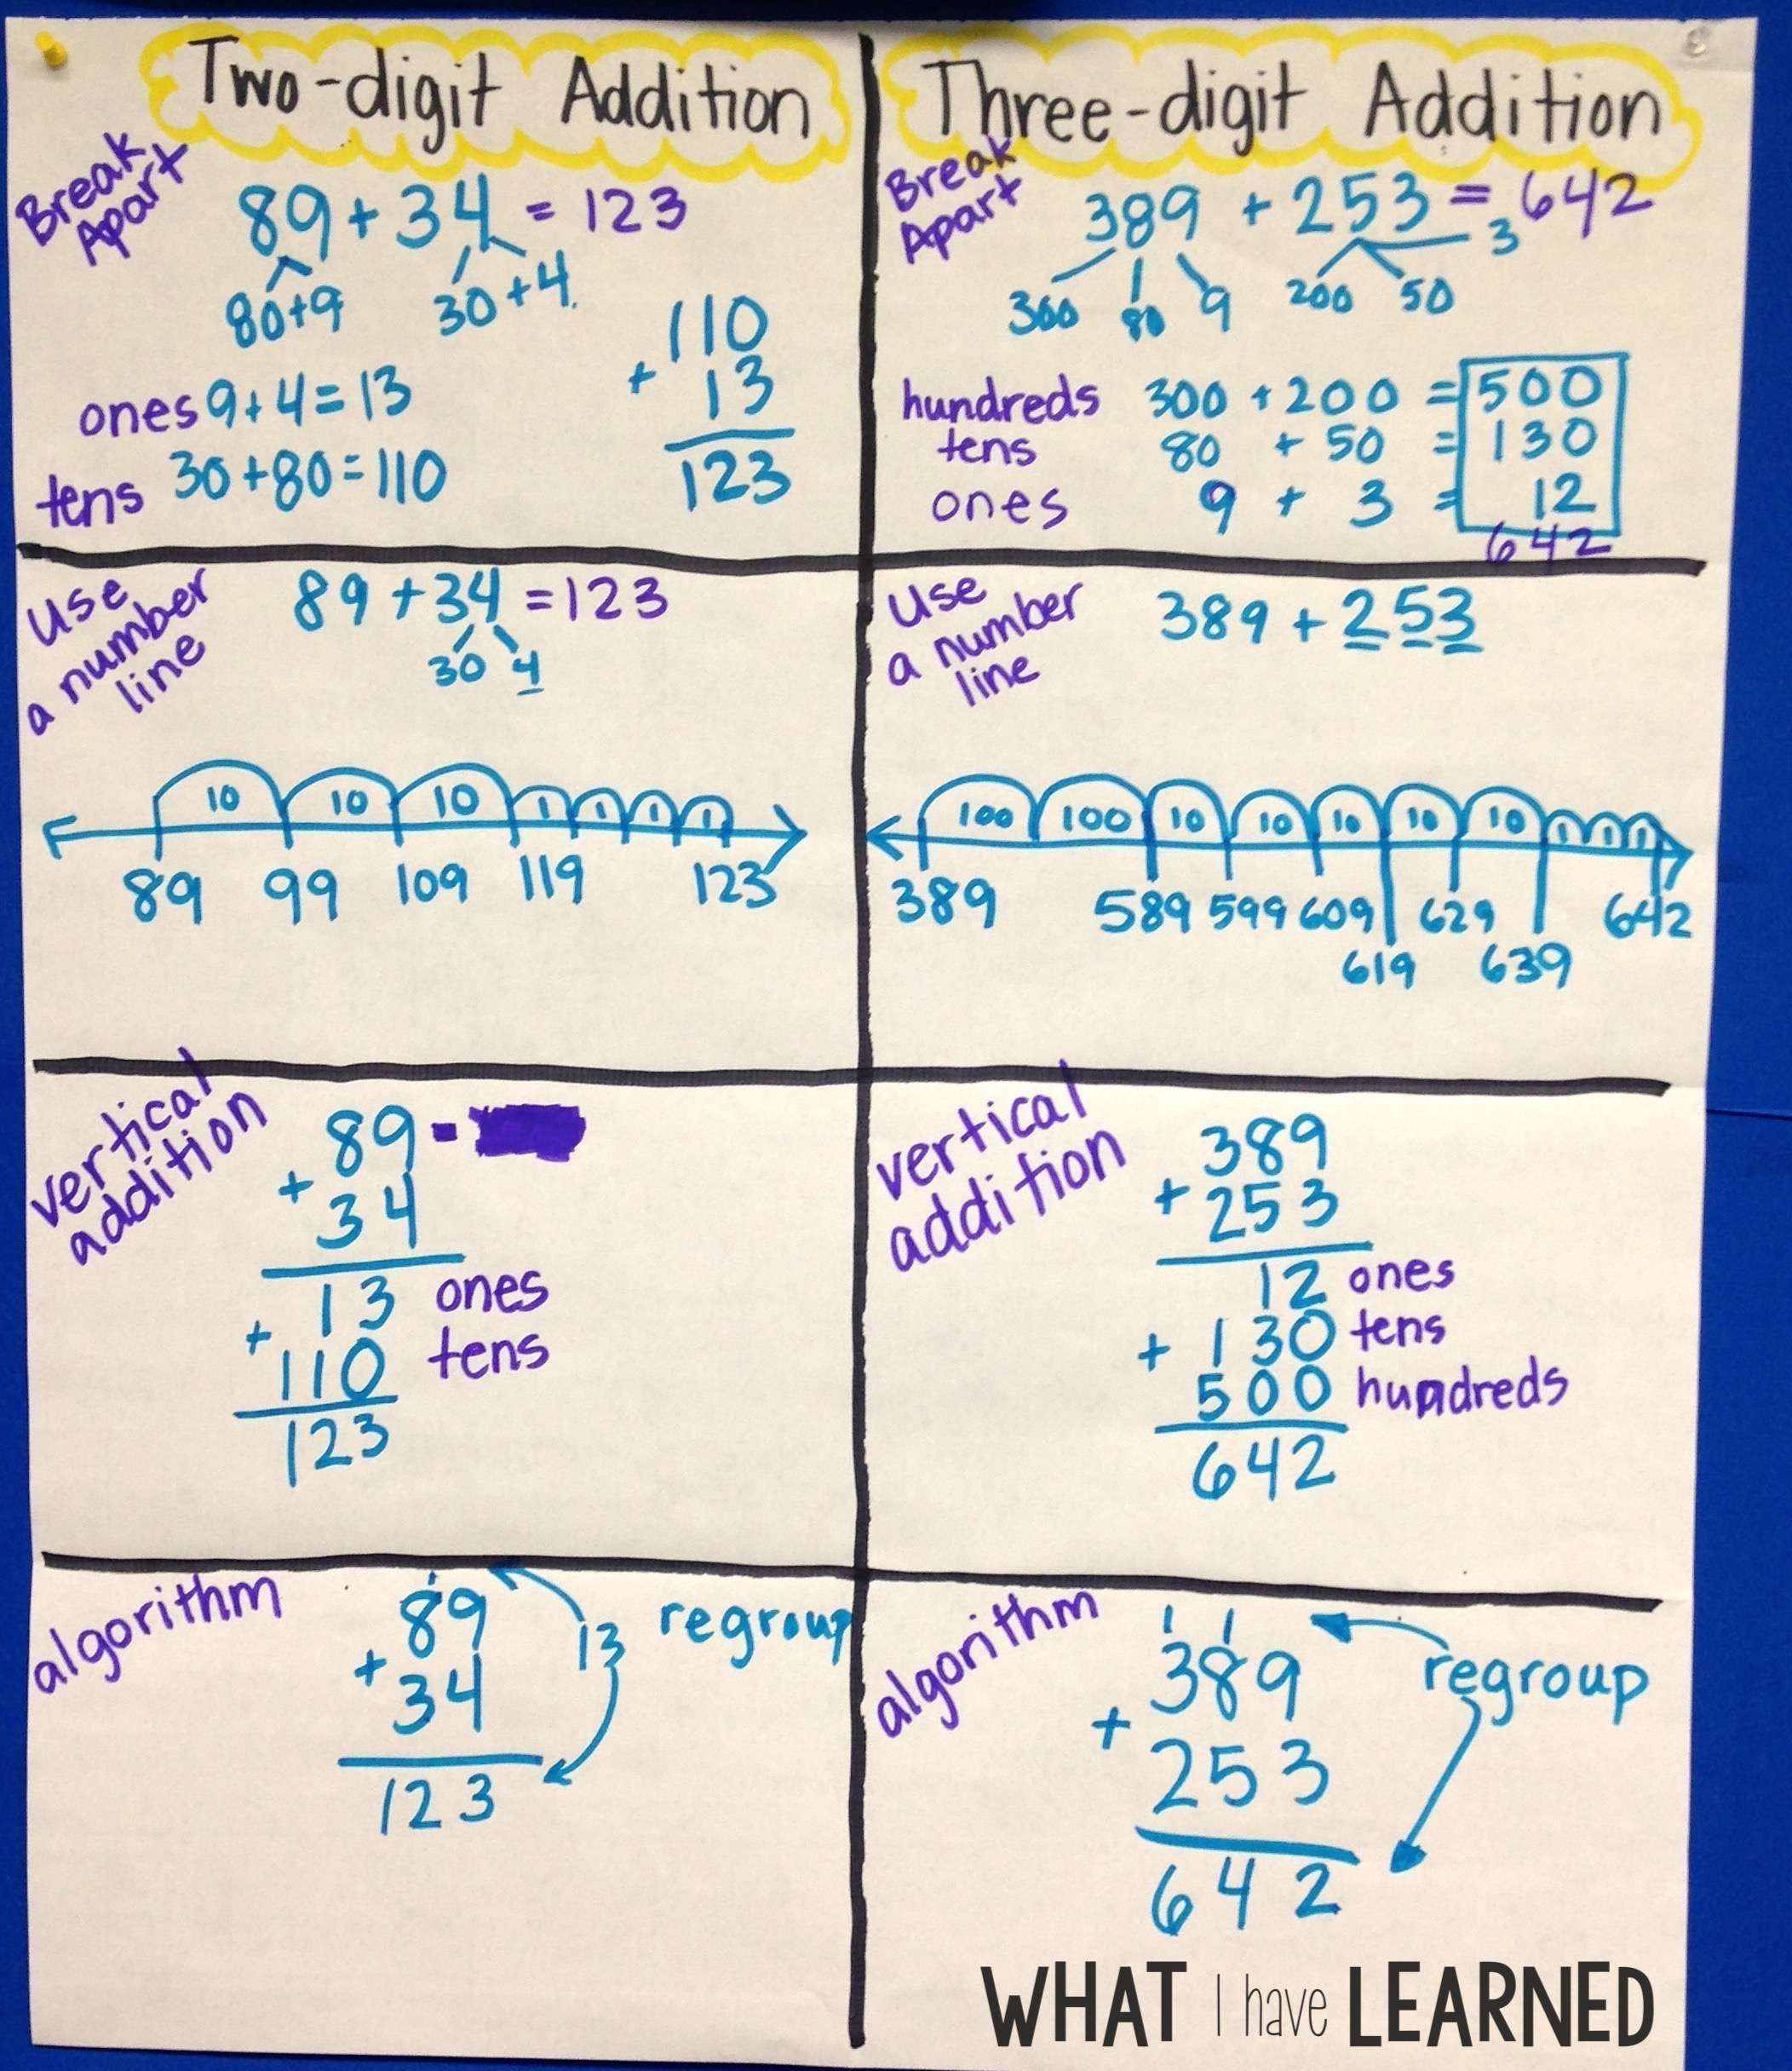 Two-digit Addition
Break Apart
89 + 34 = 123
80+9 30+4
ones 9+4=13
tens 30+80=110
110
+ 13
123
Use a number line
89 + 34 = 123
30 4
10 10 10 1 1 1 1
89 99 109 119 123
vertical addition
89 -
+ 34
13 ones
+ 110 tens
123
algorithm
1
89
+ 34
123
13 regroup
Three-digit Addition
Break Apart
389 + 253 = 642
300 80 9 200 50 3
hundreds 300 + 200 = 500
tens 80 + 50 = 130
ones 9 + 3 = 12
642
Use a number line
389 + 253
100 100 10 10 10 10 10 1 1 1
389 589 599 609 629 642
619 639
vertical addition
389
+ 253
12 ones
+ 130 tens
500 hundreds
642
algorithm
1 1
389
+ 253
642
regroup
WHAT I have LEARNED